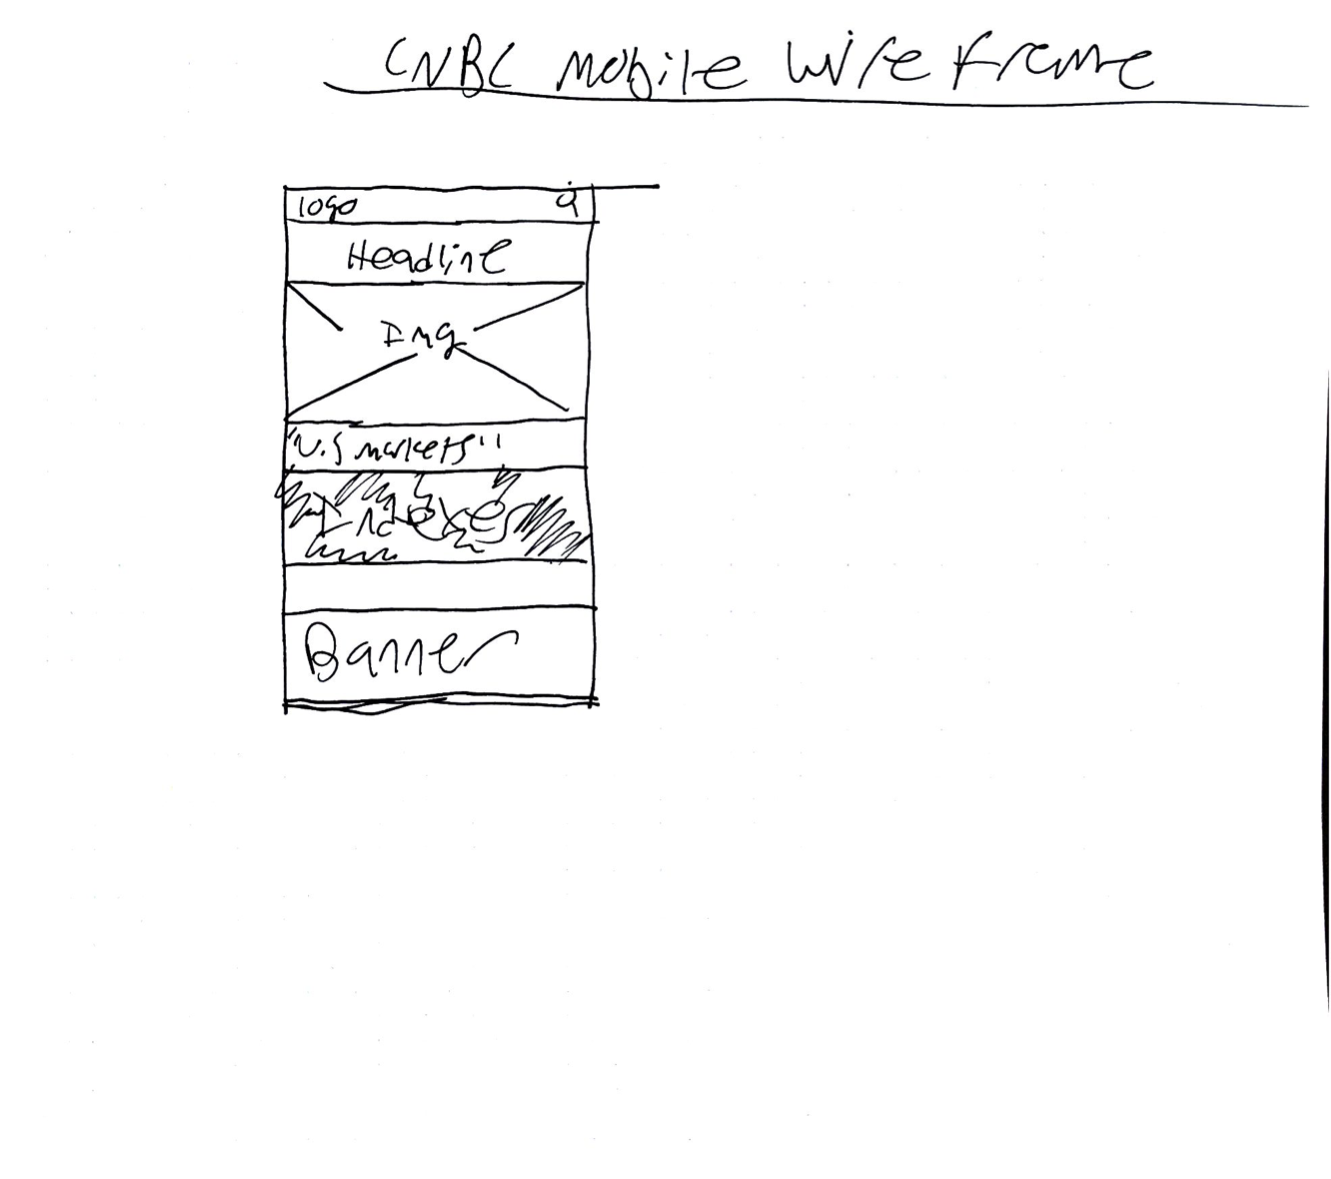 CNBC Mobile Wireframe
logo
Headline
Img
"U.S markets"
Indexes
Banner